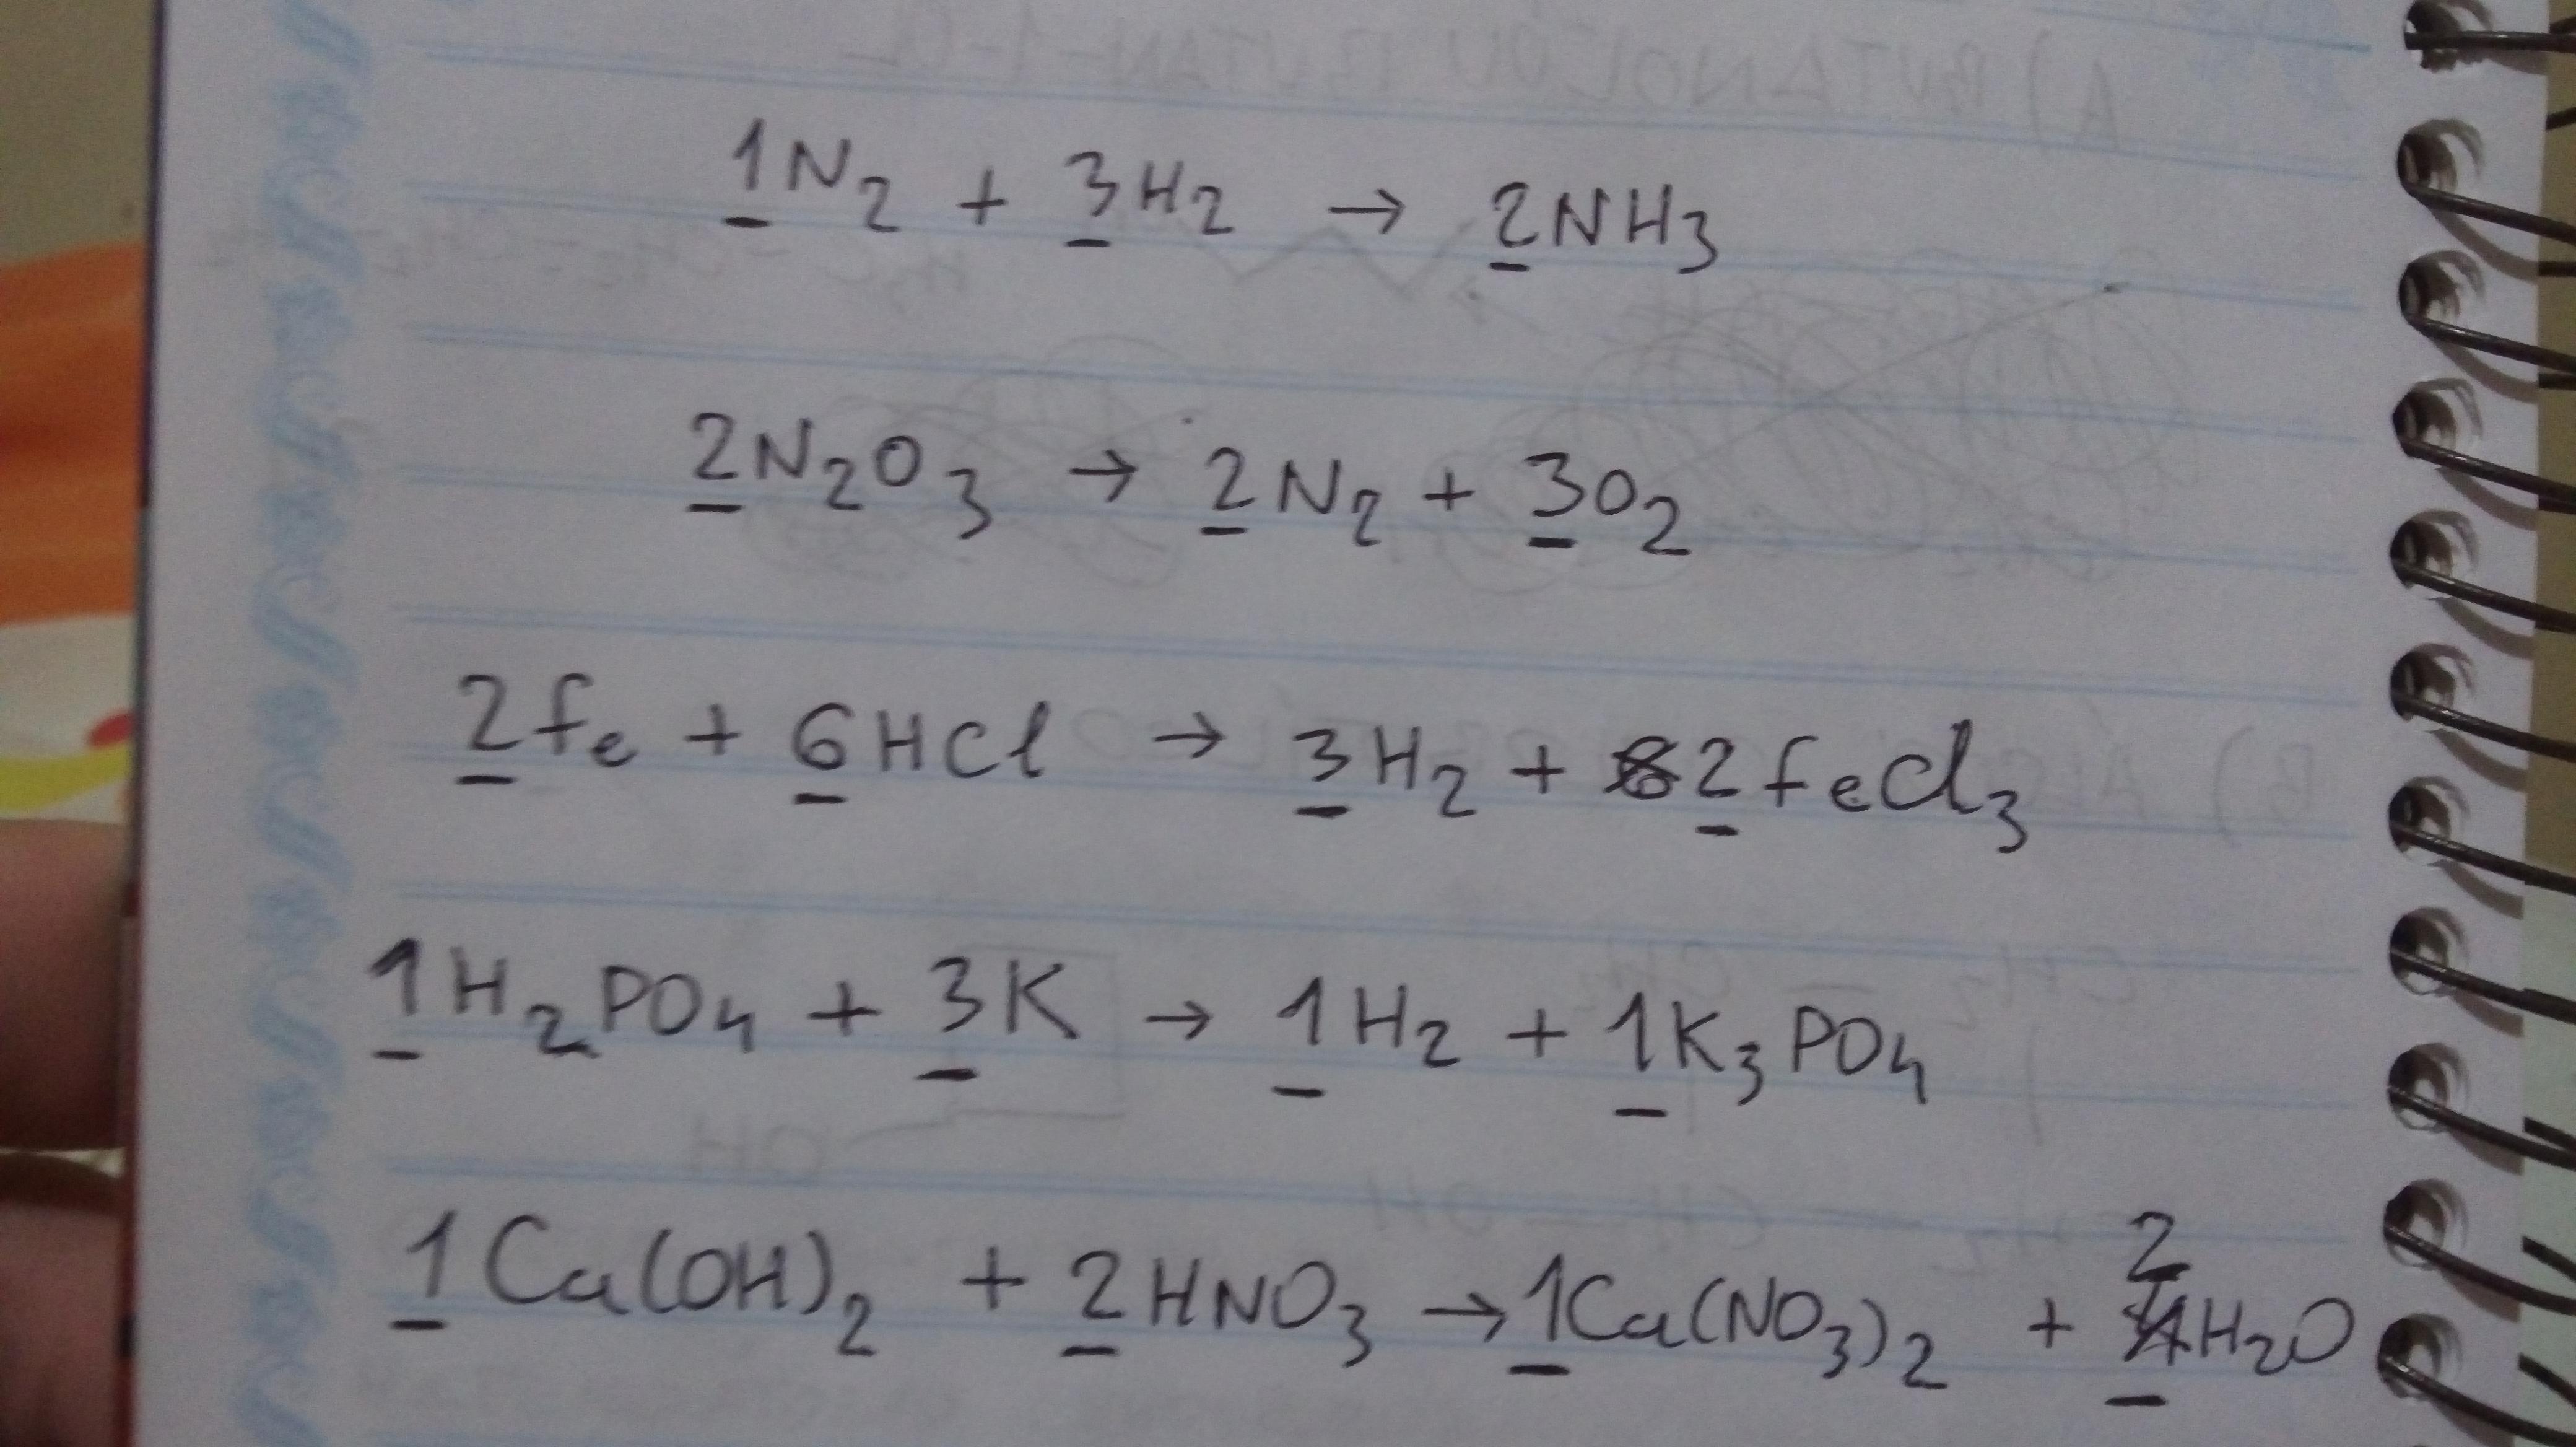 1N₂ + 3H₂ → 2NH₃
2N₂O₃ → 2N₂ + 3O₂
2fe + 6HCl → 3H₂ + 2feCl₃
1H₂PO₄ + 3K → 1H₂ + 1K₃PO₄
1Ca(OH)₂ + 2HNO₃ → 1Ca(NO₃)₂ + 2H₂O